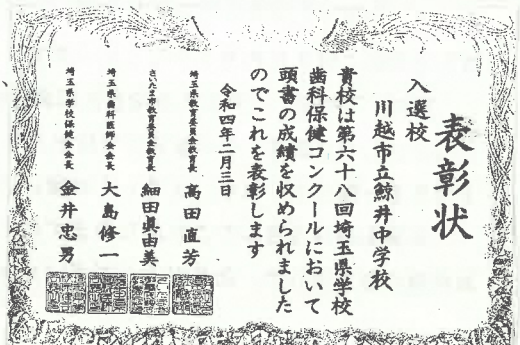 表彰状
入選校
川越市立鯨井中学校
貴校は第六十八回埼玉県学校
歯科保健コンクールにおいて
頭書の成績を収められました
のでこれを表彰します
令和四年二月三日
埼玉県教育委員会教育長 高田直芳
さいたま市教育委員会教育長 細田眞由美
埼玉県歯科医師会会長 大島修一
埼玉県学校保健会会長 金井忠男